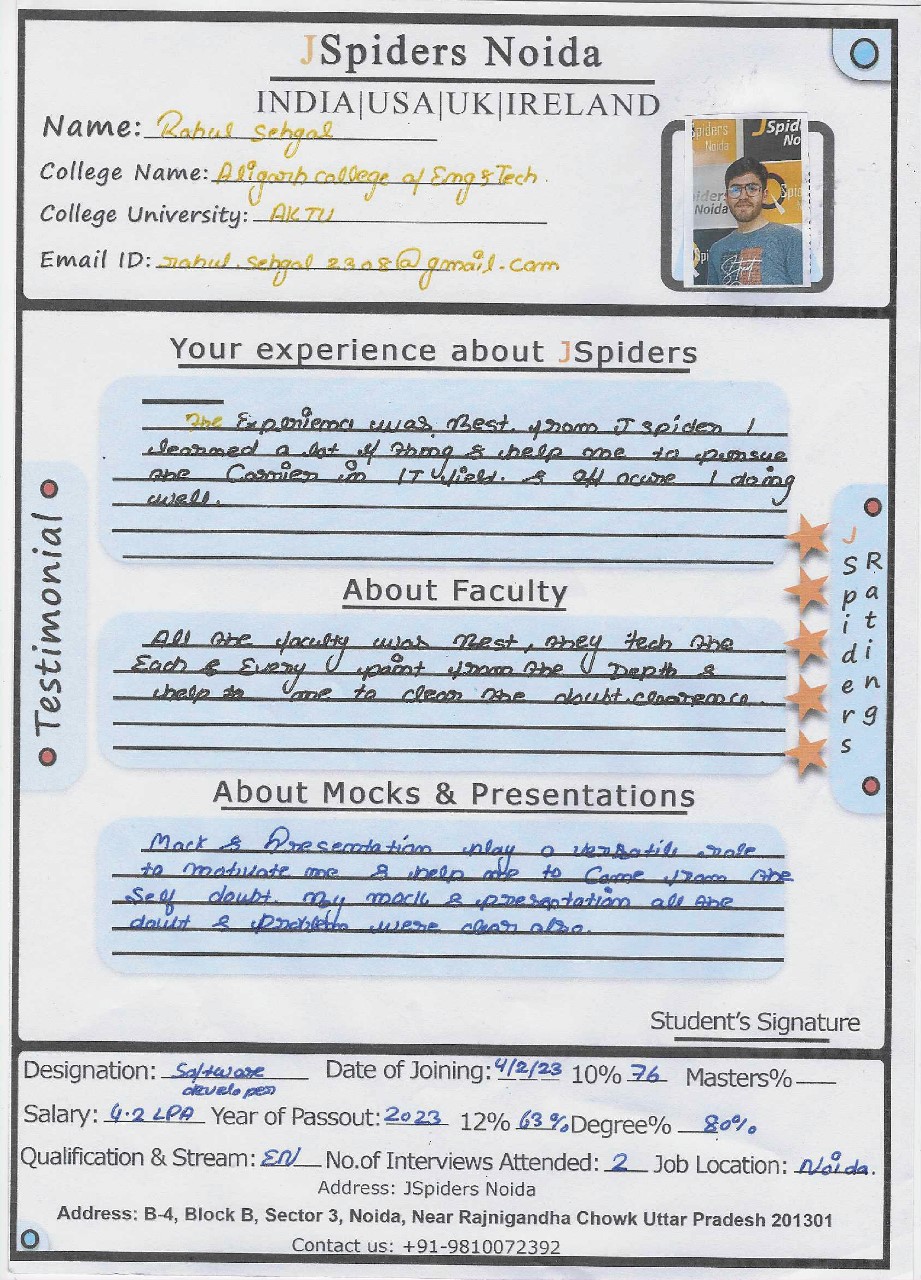 JSpiders Noida
INDIA|USA|UK|IRELAND
Name: Rahul Sehgal
College Name: Aligarh College of Eng & Tech.
College University: AKTU
Email ID: rahul.sehgal2308@gmail.com
Spiders Noida
JSpid
No
iders
Noida
Spi
Your experience about JSpiders
The Experience was Best. from J spider I
learned a lot of thing & help me to pursue
the Carrier in IT field. & off I doing
well.
About Faculty
All the faculty was Best, they tech the
Each & Every point from the Depth &
help to me to clear the doubt clearence.
About Mocks & Presentations
Mock & Presentation play a versatile role
to motivate me & help me to Come from the
Self doubt. my mock & presentation all the
doubt & problem were clear also.
Testimonial
JSpiders
Ratings
Student's Signature
Designation: Software developer Date of Joining: 4/2/23 10% 76 Masters%
Salary: 4.2 LPA Year of Passout: 2023 12% 63% Degree% 80%
Qualification & Stream: EN No.of Interviews Attended: 2 Job Location: Noida.
Address: JSpiders Noida
Address: B-4, Block B, Sector 3, Noida, Near Rajnigandha Chowk Uttar Pradesh 201301
Contact us: +91-9810072392